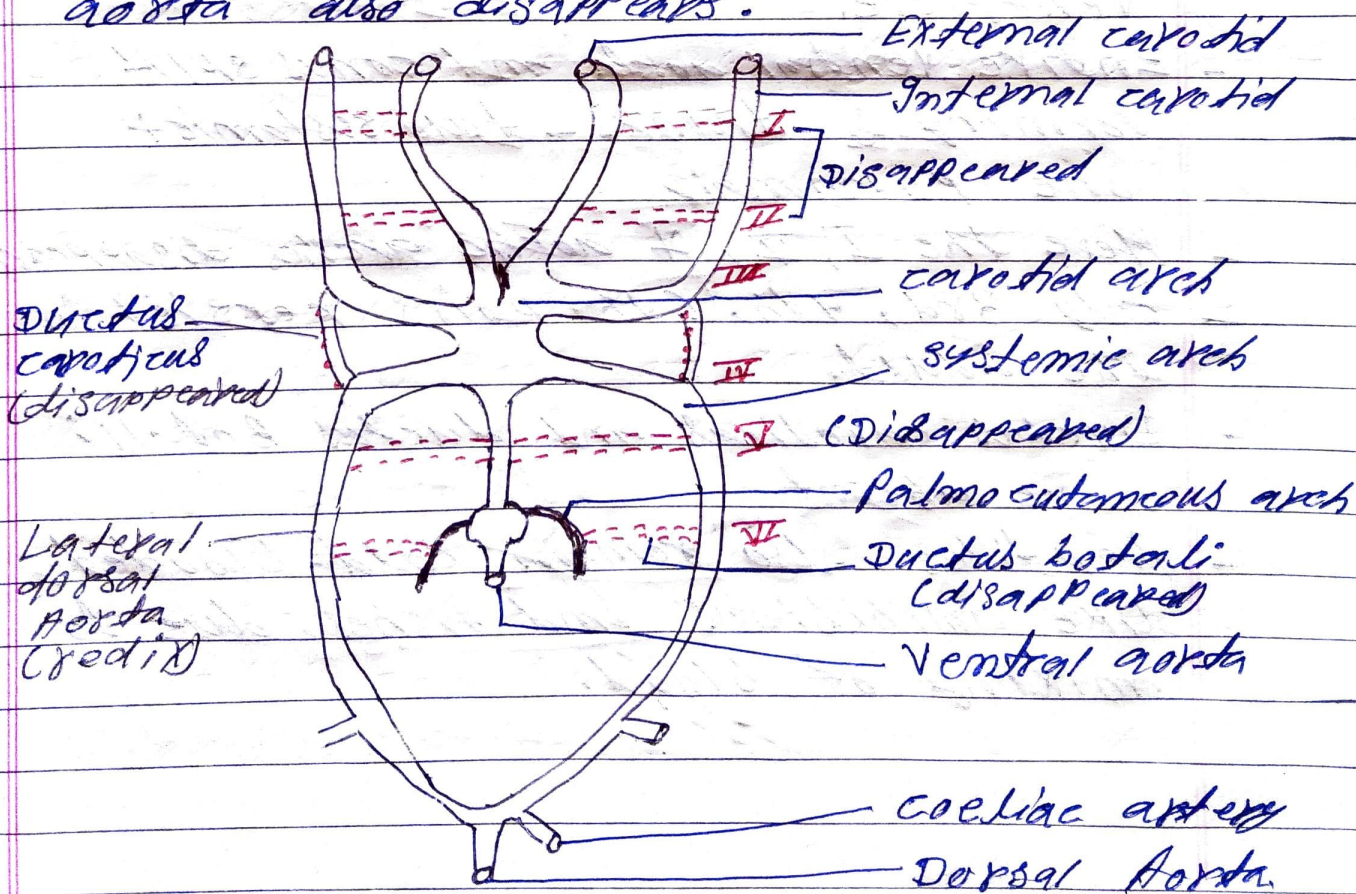 aorta also disappears.
External carotid
Internal carotid
I
Disappeared
II
III
carotid arch
Ductus
caroticus
(disappeared)
systemic arch
IV
V (Disappeared)
Palmocutaneous arch
VI
Lateral
dorsal
Aorta
(redix)
Ductus botali
(disappeared)
Ventral aorta
coeliac artery
Dorsal Aorta